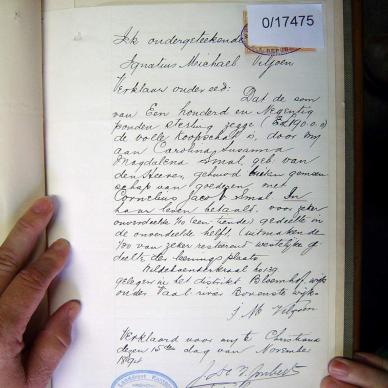 0/17475
Ik ondergeteekende
Ignatius Michael Viljoen
Verklaar onder eed: Dat de som
van Een honderd en Negentig
ponden sterling zegge £190.0.0
de volle Koopschat is, door my
aan Carolina Susanna
Magdalena Smal, geb. van
den Heever, gehuwd buiten gemeen
schap van goederen met
Cornelius Jacob Smal In
haar leven betaalt, voor zeker
onverdeelde 1/10 (een tiende) gedeelte in
de onverdeelde helft (uitmakende
van zeker restant westelyke ge
deelte der leeningsplaats
gelegen in het distrikt Bloemhof, wyk
onder Vaal rivier Bovenste wyk
I. M. Viljoen
Verklaard voor my te Christiana
dezen 15den dag van November
1894